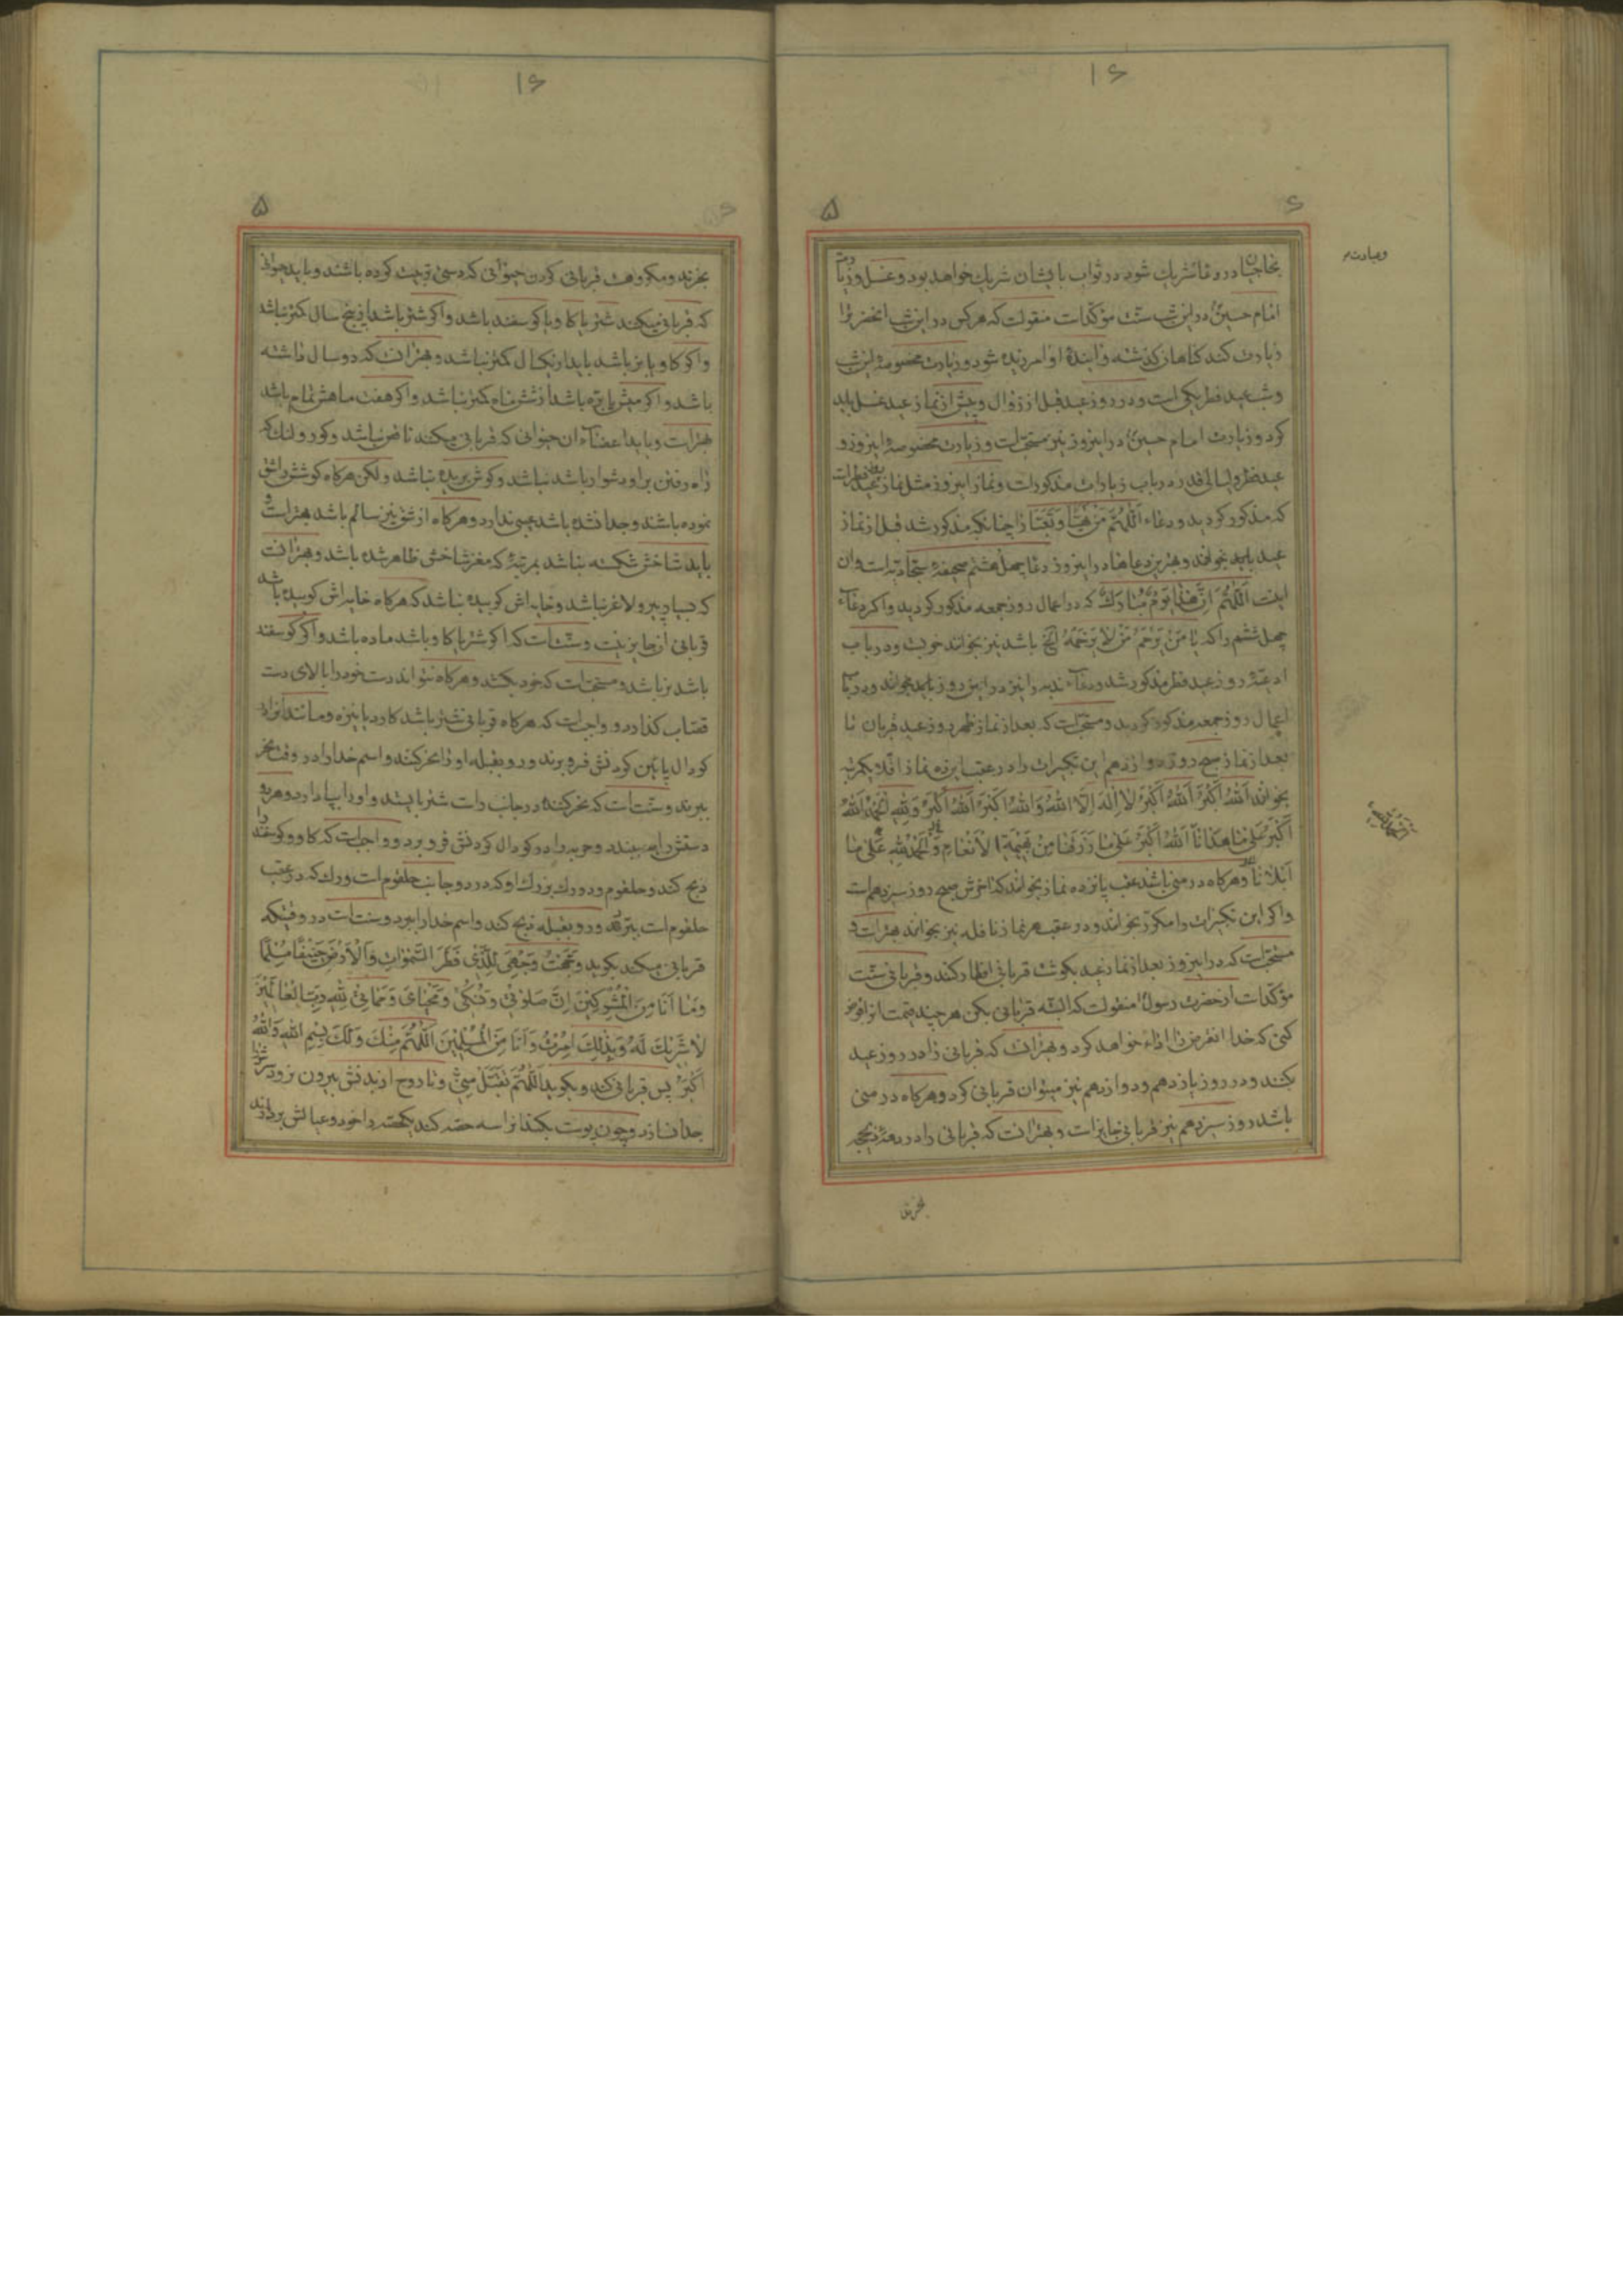 ۱۶
۶
۵
بحاجیان در دعا شریك شود در ثواب با ایشان شریك خواهد بود و غسل و زیارت
امام حسین در این شب سنت مؤکدات منقولست که هر کس در این شب انحضرترا
زیارت کند کناهان کذشته و ایندهٔ او امرزیده شود و زیارت مخصوصهٔ این شب
و شب عید فطر یکی است و در روز عید قبل از زوال و پیش از نماز عید غسل باید
کرد و زیارت امام حسین در اینروز نیز مستحبات و زیارت مخصوصهٔ اینروز و
عید فطر و لیالی قدر در باب زیارات مذکورات و نماز اینروز مثل نماز عید فطرات
که مذکور کردید و دعاء اَللّهُمَّ مَنْ تَهَیَّأَ وَ تَعَبَّأَ را چنانکه مذکور شد قبل از نماز
عید باید بخواند و بهترین دعاها در اینروز دعا چهل هشتم صحیفهٔ سجادیه است و ان
اینست اَللّهُمَّ اِنَّ هٰذا یَوْمٌ مُبٰارَكٌ که در اعمال روز جمعه مذکور کردید و اکر دعاء
چهل ششم را که یٰا مَنْ یَرْحَمُ مَنْ لٰا یَرْحَمُهُ الخ باشد نیز بخواند خوبست و در باب
ادعیهٔ روز عید فطر مذکور شد و دعاء ندبه را نیز در این روز باید بخواند و در باب
اعمال روز جمعه مذکور کردید و مستحبات که بعد از نماز ظهر روز عید قربان تا
بعد از نماز صبح روز دوازدهم این تکبیرات را در عقب پانزده نماز اقلا یکمرتبه
بخواند اَللّهُ اَکْبَرُ اَللّهُ اَکْبَرُ لٰا اِلٰهَ اِلَّا اللّهُ وَاللّهُ اَکْبَرُ اَللّهُ اَکْبَرُ وَ لِلّهِ الْحَمْدُ اَللّهُ
اَکْبَرُ عَلٰی مٰا هَدٰانٰا اَللّهُ اَکْبَرُ عَلٰی مٰا رَزَقَنٰا مِنْ بَهیمَةِ الْاَنْعٰامِ وَ الْحَمْدُ لِلّهِ عَلٰی مٰا
اَبْلٰانٰا و هر کاه در منی باشد عقب پانزده نماز بخواند که اخرش صبح روز سیزدهم است
و اکر این تکبیرات را مکرر بخواند و در عقب هر نماز نافله نیز بخواند بهترات و
مستحبات که در اینروز بعد از نماز عید بکوشت قربانی افطار کند و قربانی سنت
مؤکدات از حضرت رسول منقولست که البته قربانی بکن هر چند قیمت انرا قرض
کنی که خدا انقرض را اداء خواهد کرد و بهترانست که قربانی را در روز عید
بکنند و در روز یازدهم و دوازدهم نیز میتوان قربانی کرد و هر کاه در منی
باشد روز سیزدهم نیز قربانی جایز است و بهترانست که قربانی را در دههٔ ذیحجه
۱۶
۵
بخرند و مکروهست قربانی کردن حیوانی که دستی تربیت کرده باشند و باید حیوانی
که قربانی میکند شتر یا کاو یا کوسفند باشد و اکر شتر باشد از پنج سال کمتر نباشد
و اکر کاو یا بز باشد باید از یکسال کمتر نباشد و بهترانست که دو سال داشته
باشد و اکر میش یا بره باشد از شش ماه کمتر نباشد و اکر هفت ماهش تمام باشد
بهترات و باید اعضاء ان حیوانی که قربانی میکند ناقص نباشد و کور و لنك که
راه رفتن بر او دشوار باشد نباشد و کوش بریده نباشد ولکن هر کاه کوشش را شق
نموده باشند و جدا نشده باشد عیبی ندارد و هر کاه از شق نیز سالم باشد بهترات و
باید شاخش شکسته نباشد بمرتبهٔ که مغز شاخش ظاهر شده باشد و بهترانست
که بسیار پیر و لاغر نباشد و خایه‌اش کوبیده نباشد که هر کاه خایه‌اش کوبیده باشد
قربانی ان جایز نیست و سنت است که اکر شتر یا کاو باشد ماده باشد و اکر کوسفند
باشد نر باشد و مستحبات که خود بکشد و هر کاه نتواند دست خود را بالای دست
قصاب کذارد و واجب است که هر کاه قربانی شتر باشد کارد یا نیزه و مانند انرا
کودال پائین کردنش فرو برند و رو بقبله او را نحر کنند و اسم خدا را در وقت نحر
ببرند و سنت است که نحر کننده در جانب راست شتر بایستد و او را بپا دارد و هر دو
دستش را ببندد و حربه را در کودال کردنش فرو برد و واجب است که کاو و کوسفند را
ذبح کند و حلقوم و دو رك بزرك او که در دو جانب حلقوم است و رك که در عقب
حلقوم است ببرد و رو بقبله ذبح کند و اسم خدا را ببرد و سنت است در وقتیکه
قربانی میکند بکوید وَجَّهْتُ وَجْهِیَ لِلَّذی فَطَرَ السَّمٰوٰاتِ وَالْاَرْضَ حَنیفًا مُسْلِمًا
وَ مٰا اَنَا مِنَ الْمُشْرِکینَ اِنَّ صَلوٰتی وَ نُسُکی وَ مَحْیٰایَ وَ مَمٰاتی لِلّهِ رَبِّ الْعٰالَمینَ
لٰا شَریكَ لَهُ وَ بِذٰلِكَ اُمِرْتُ وَ اَنَا مِنَ الْمُسْلِمینَ اَللّهُمَّ مِنْكَ وَ لَكَ بِسْمِ اللّهِ وَ اللّهُ
اَکْبَرُ پس قربانی کند و بکوید اَللّهُمَّ تَقَبَّلْ مِنّی و تا روح از بدنش بیرون نرود سرش را
جدا نسازد و چون پوست بکند انرا سه حصه کند یکحصه را خود و عیالش بردارند